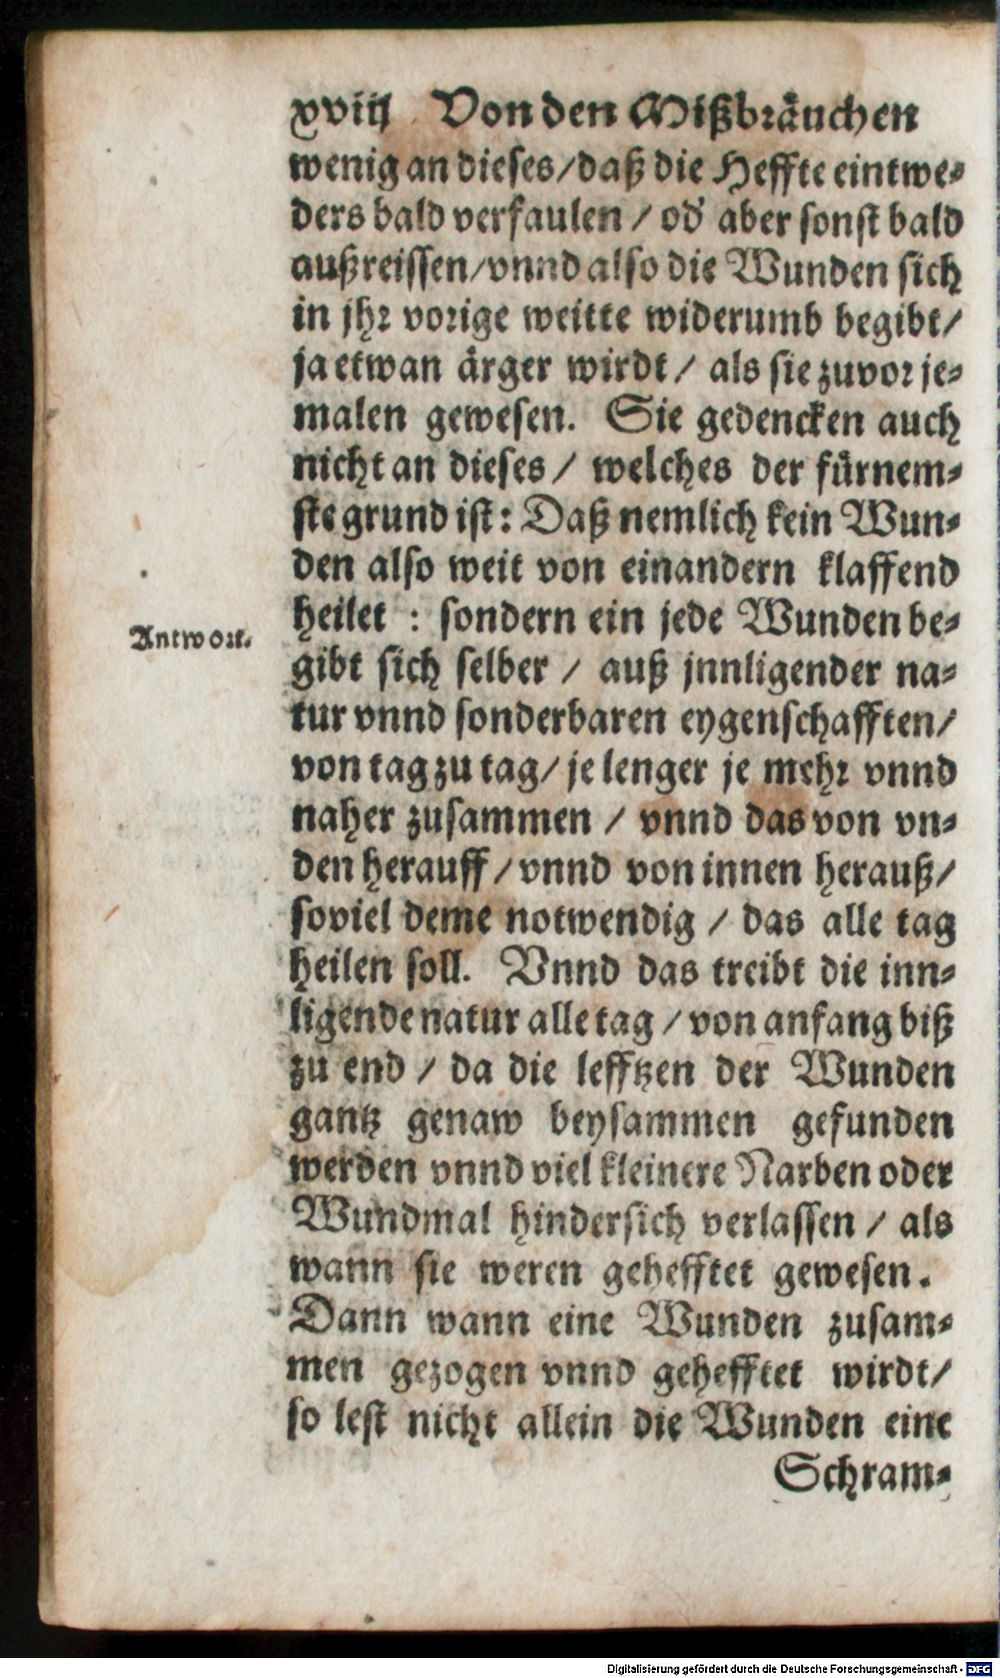 xviij Von den Mißbräuchen
wenig an dieses/daß die Heffte eintwe⸗
ders bald verfaulen / od' aber sonst bald
außreissen/vnnd also die Wunden sich
in jhr vorige weitte widerumb begibt/
ja etwan ärger wirdt / als sie zuvor je⸗
malen gewesen. Sie gedencken auch
nicht an dieses / welches der fürnem⸗
ste grund ist: Daß nemlich kein Wun⸗
den also weit von einandern klaffend
heilet : sondern ein jede Wunden be⸗
Antwort.
gibt sich selber / auß jnnligender na⸗
tur vnnd sonderbaren eygenschafften/
von tag zu tag/ je lenger je mehr vnnd
naher zusammen / vnnd das von vn⸗
den herauff / vnnd von innen herauß/
soviel deme notwendig / das alle tag
heilen soll. Vnnd das treibt die inn⸗
ligende natur alle tag / von anfang biß
zu end / da die lefftzen der Wunden
gantz genaw beysammen gefunden
werden vnnd viel kleinere Narben oder
Wundmal hindersich verlassen / als
wann sie weren gehefftet gewesen.
Dann wann eine Wunden zusam⸗
men gezogen vnnd gehefftet wirdt/
so lest nicht allein die Wunden eine
Schram⸗
Digitalisierung gefördert durch die Deutsche Forschungsgemeinschaft - DFG